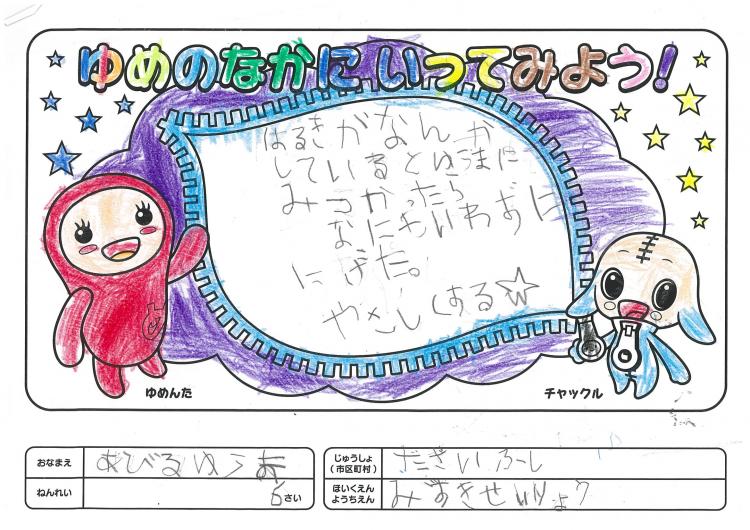 ゆめのなかにいってみよう!
はるきがなんか
しているとゆうまに
みつかったら
なにもいわずに
にげた。
やさしくする☆
ゆめんた
チャックル
おなまえ
あびるゆうあ
ねんれい
6さい
じゅうしょ
(市区町村)
だざいふし
ほいくえん
ようちえん
みずき